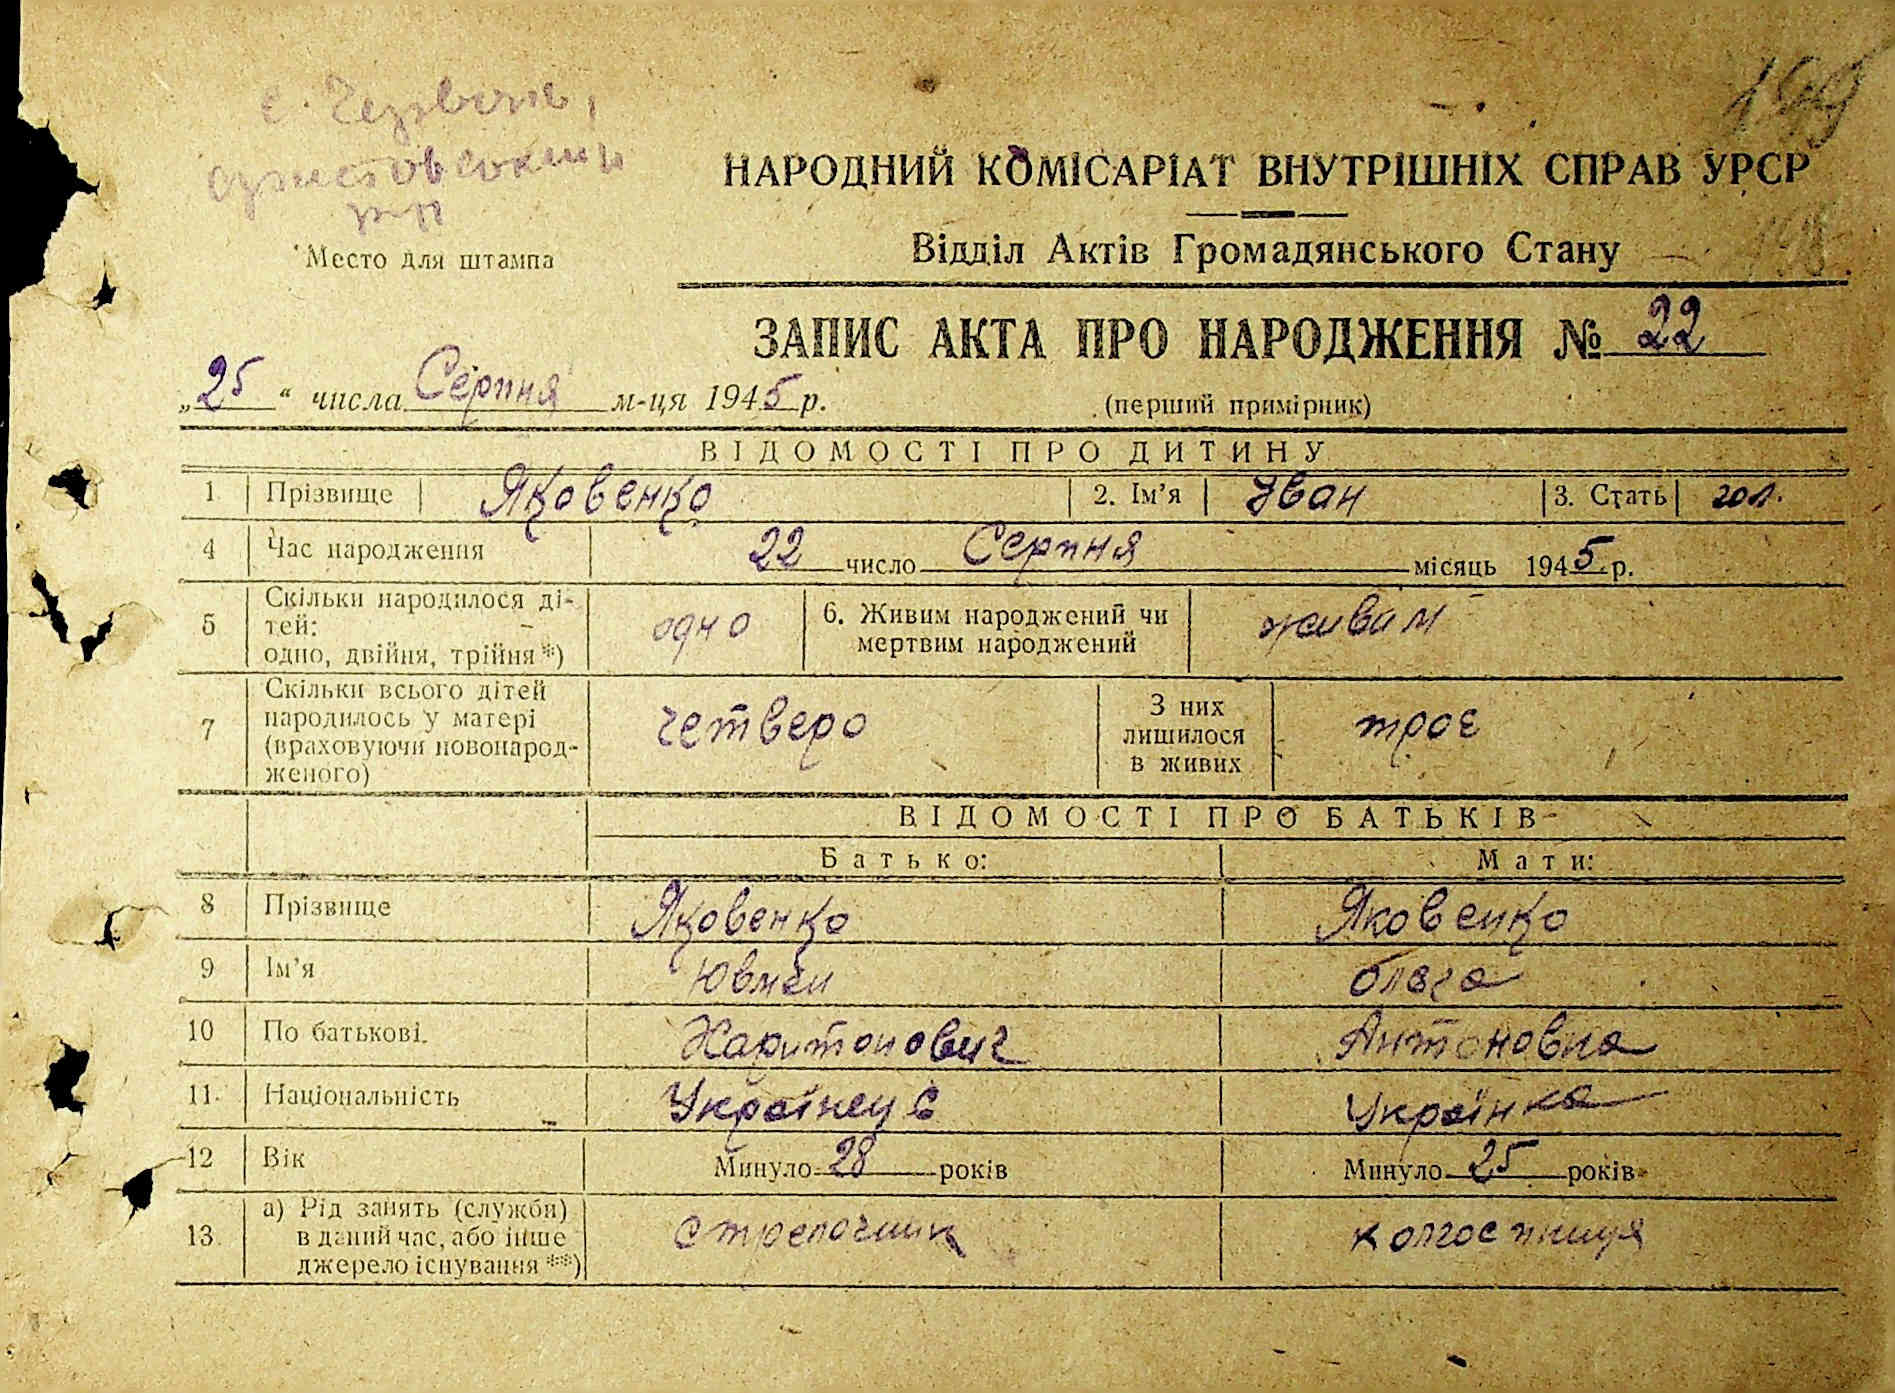 с. Червоне,
р-н
199
Место для штампа
НАРОДНИЙ КОМІСАРІАТ ВНУТРІШНІХ СПРАВ УРСР
Відділ Актів Громадянського Стану
198
ЗАПИС АКТА ПРО НАРОДЖЕННЯ № 22
„25“ числа Серпня м-ця 1945 р.
(перший примірник)
ВІДОМОСТІ ПРО ДИТИНУ
1 Прізвище Яковенко 2. Ім’я Іван 3. Стать чол.
4 Час народження 22 число Серпня місяць 1945 р.
5 Скільки народилося ді-
тей:
одно, двійня, трійня *)
одно
6. Живим народжений чи
мертвим народжений
живим
7 Скільки всього дітей
народилось у матері
(враховуючи новонарод-
женого)
четверо
З них
лишилося
в живих
троє
ВІДОМОСТІ ПРО БАТЬКІВ
Батько: Мати:
8 Прізвище Яковенко Яковенко
9 Ім’я Ольга
10 По батькові. Харитонович Антоновна
11. Національність Українець Українка
12 Вік Минуло 28 років Минуло 25 років
13. а) Рід занять (служби)
в даний час, або інше
джерело існування **)
стрелочник колгоспниця